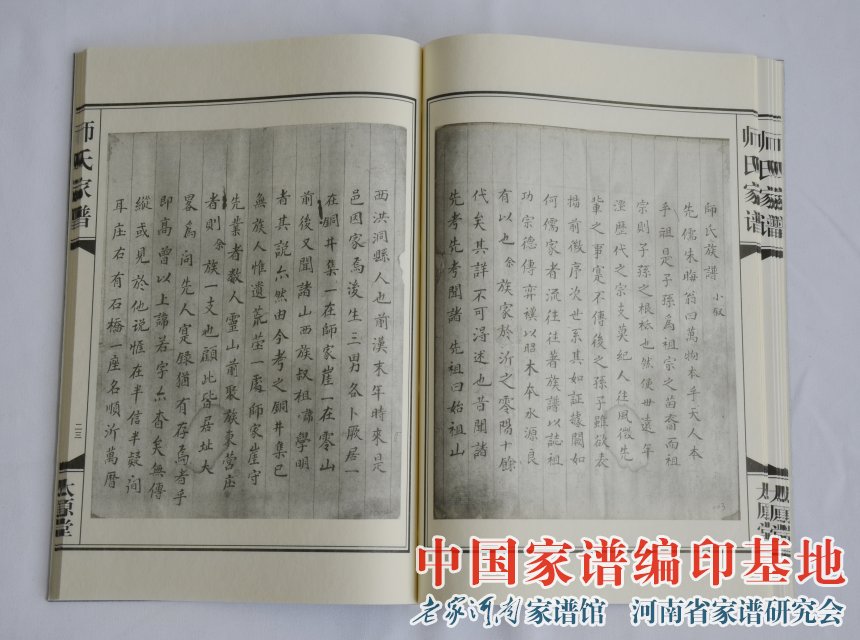 師氏族譜 小敘
先儒朱晦翁曰萬物本乎天人本
乎祖是子孫為祖宗之苗裔而祖
宗則子孫之根柢也然使世遠年
湮歷代之宗支莫紀人往風微先
輩之事寔不傳後之孫子雖欲表
揚前徽序次世系其如証據闕如
何儒家者流往往著族譜以誌祖
功宗德傳弈禩以昭木本水源良
有以也余族家於沂之零陽十餘
代矣其詳不可得述也昔聞諸
先考先考聞諸 先祖曰始祖山
西洪洞縣人也前漢末年時來是
邑因家焉後生三男各卜厥居一
在銅井集一在師家崖一在零山
前後又聞諸山西族叔祖諱學明
者其說亦然由今考之銅井集已
無族人惟遺荒塋一處師家崖守
先業者數人靈山前聚族東營庄
者則余族一支也顧此皆居址大
畧為問先人寔錄猶有存焉者乎
即高曾以上諱若字亦杳矣無傳
縱或見於他說恆在半信半疑間
耳庄右有石橋一座名順沂萬曆
师氏家谱
二三
太原堂
师氏家谱
太原堂
中国家谱编印基地
老家河南家谱馆 河南省家谱研究会